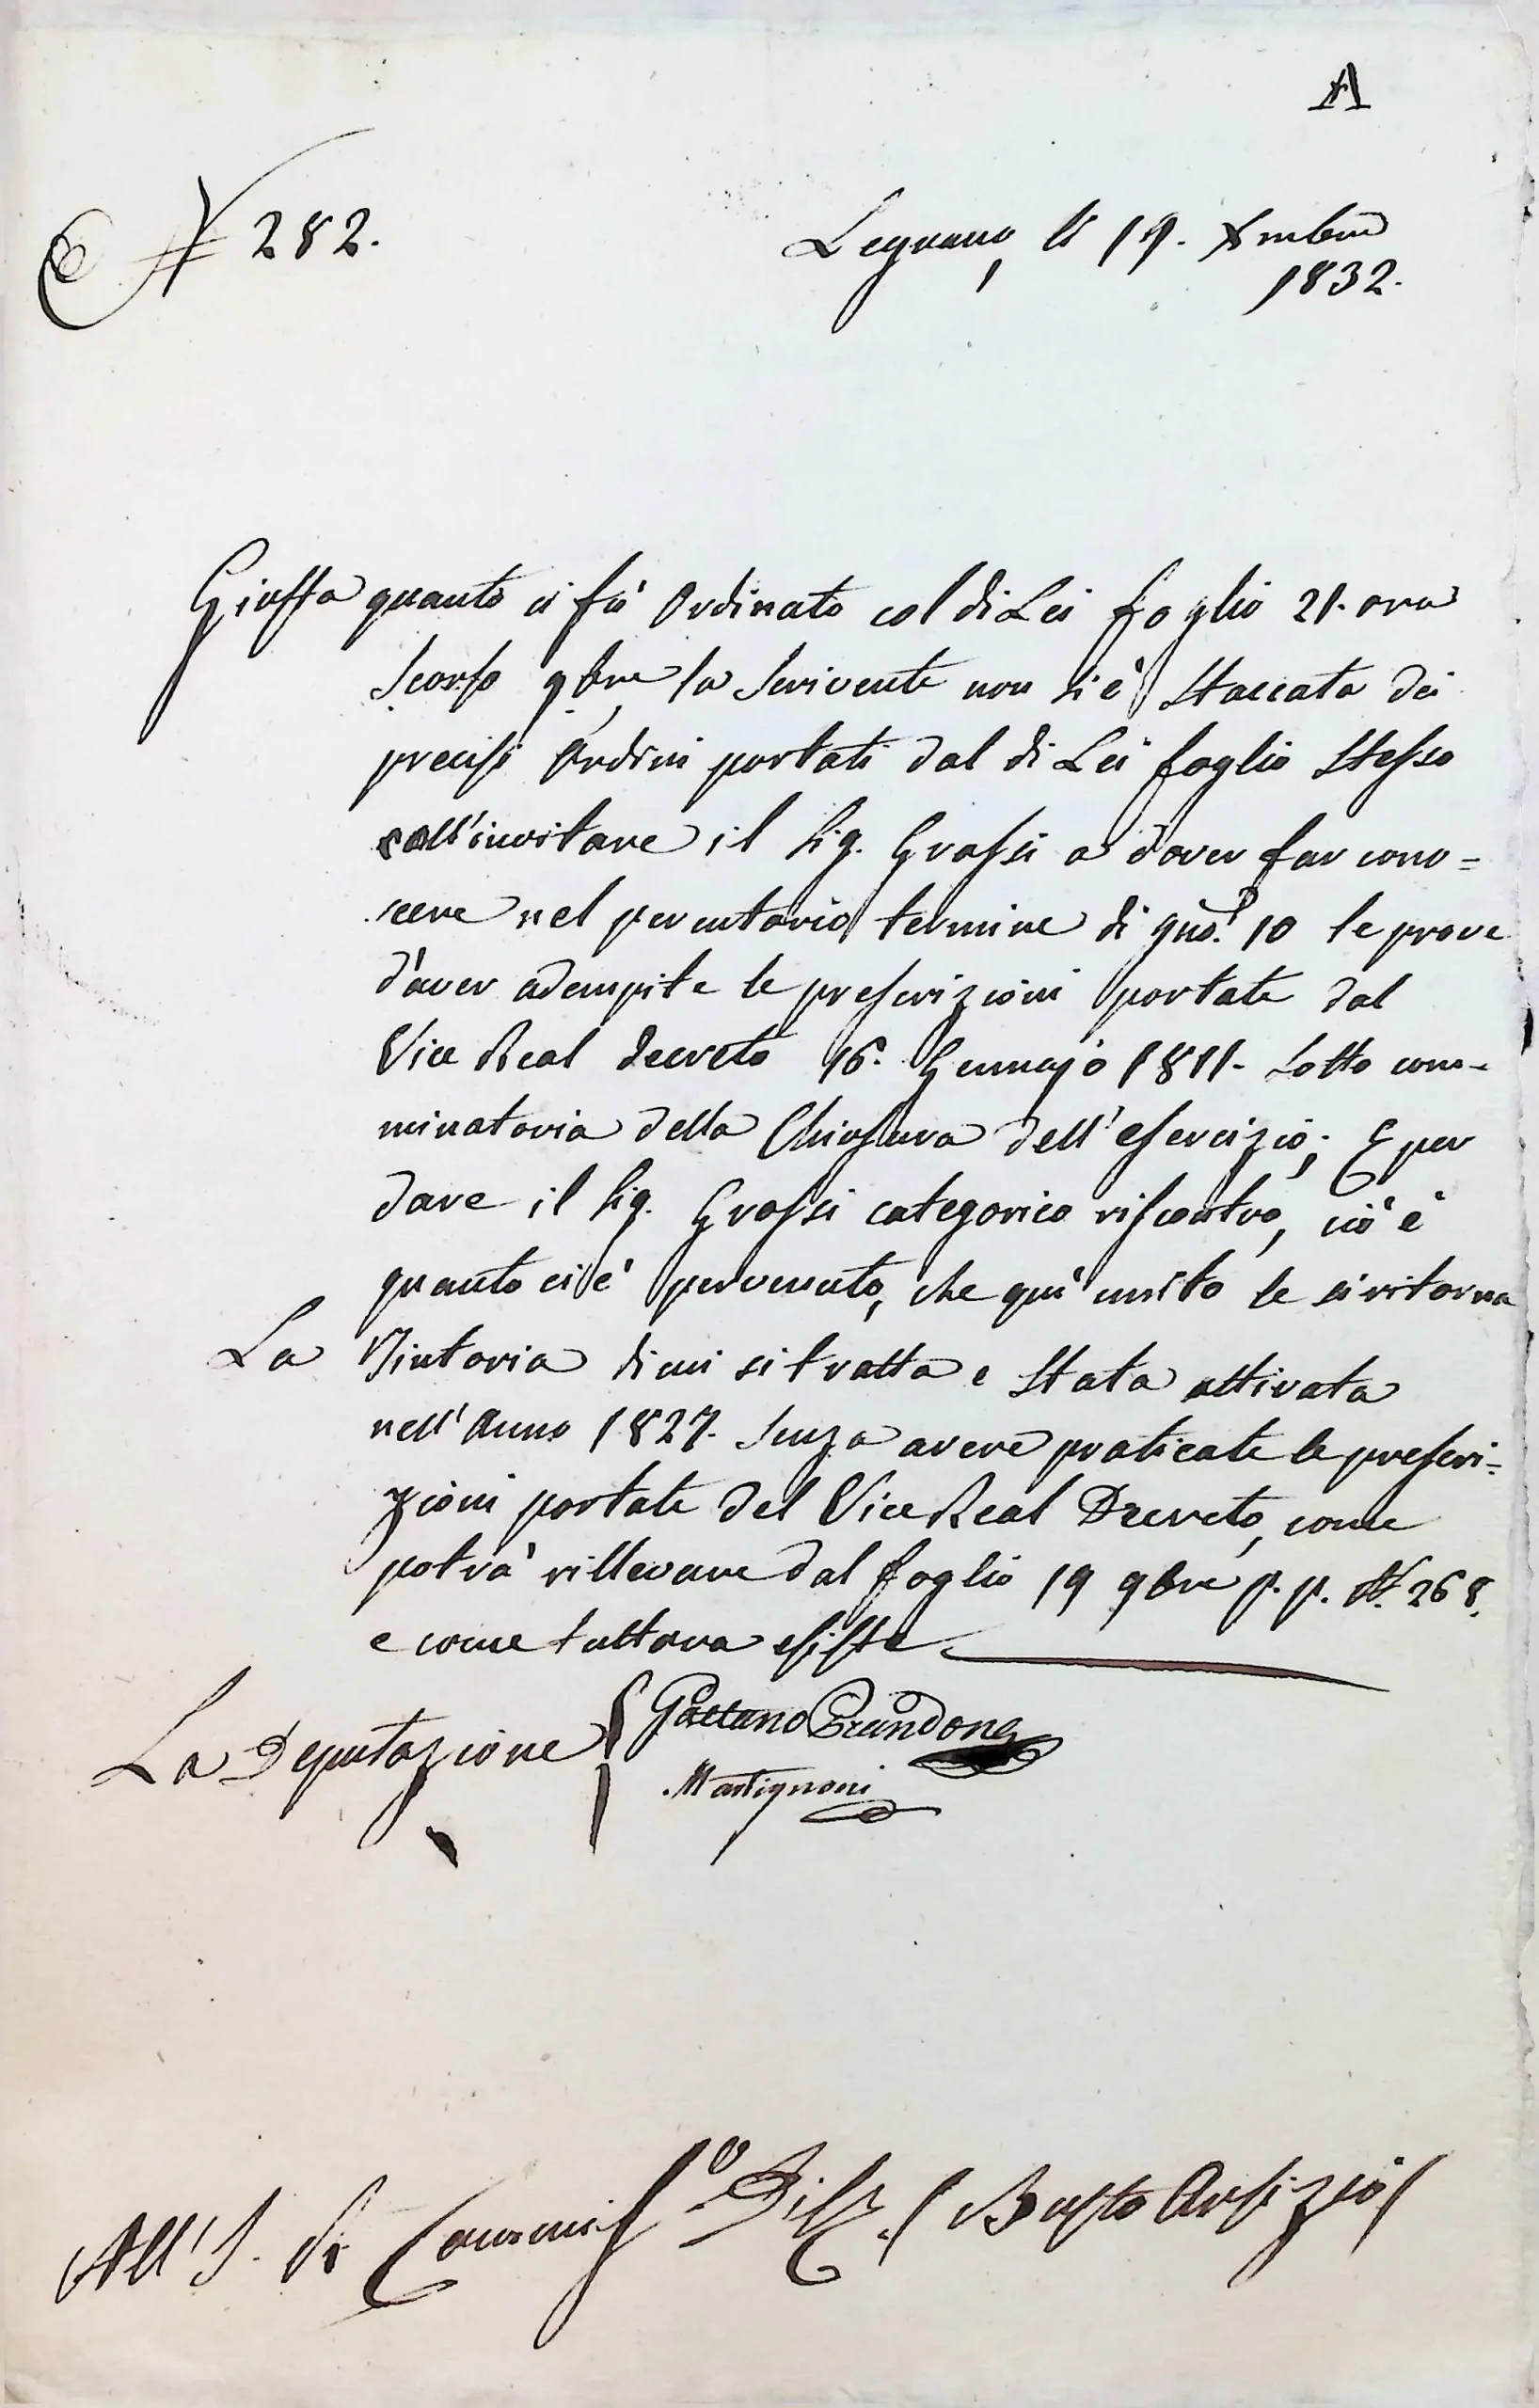 A
N 282.
Legnano, li 19. Xmbre
1832.
Giusta quanto ci fù Ordinato col di Lei foglio 21. ora
scorso 9bre, la Scrivente non si è staccata dei
precisi Ordini portati dal di Lei foglio stesso
coll'invitare il Sig. Grassi a dover far cono=
scere nel perentorio termine di gno. 10 le prove
d'aver adempite le prescrizioni portate dal
Vice Real decreto 16. Gennajo 1811. sotto com-
minatoria della Chiusura dell'esercizio; E per
dare il Sig. Grassi categorico riscontro, ciò è
quanto ci è pervenuto, che quì unito le si ritorna
La Tintoria di cui si tratta e stata attivata
nell'Anno 1827. senza avere praticate le prescri=
zioni portate del Vice Real Decreto, come
potrà rillevare dal foglio 19 9bre p. p. N. 268.
e come tuttora esiste
La Deputazione
Gaetano Prandone
Martignoni
All' I. R. Commiss.º Dist. (Busto Arsizio)